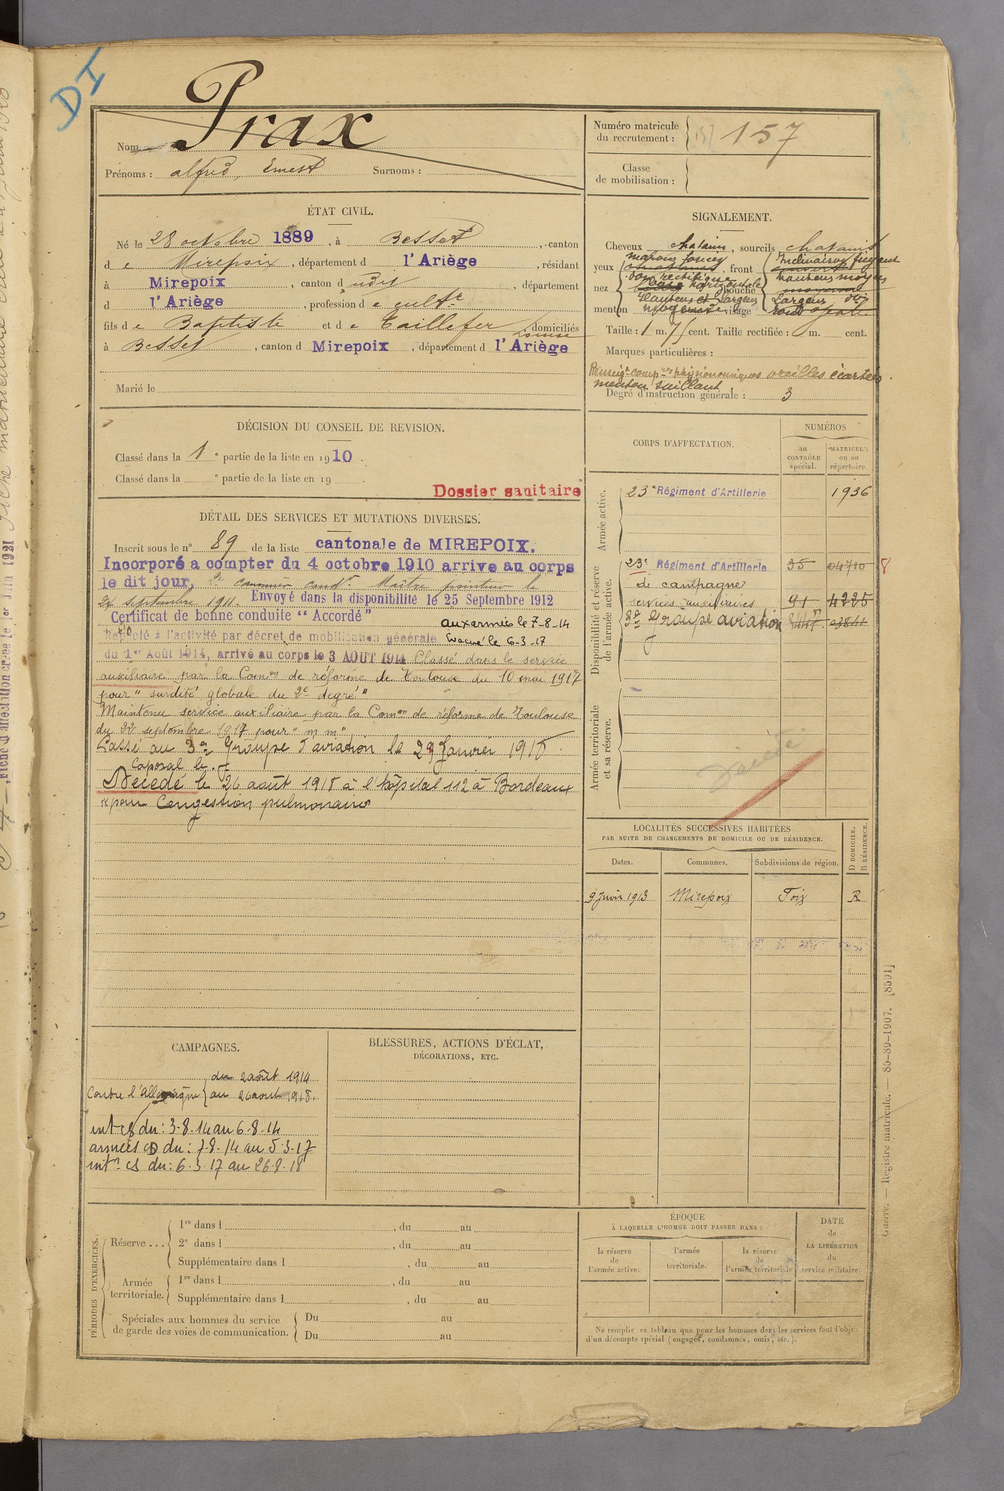 DI
Prax
Nom
Prénoms : alfred, Ernest Surnoms :
Numéro matricule
du recrutement : 157
Classe
de mobilisation :
ÉTAT CIVIL.
Né le 28 octobre 1889, à Besset, canton
de Mirepoix, département d l'Ariège, résidant
à Mirepoix, canton d udit, département
d l'Ariège, profession de cultr
fils de Baptiste et de Taillefer domiciliés
à Besset, canton d Mirepoix, département d l'Ariège
Marié le
SIGNALEMENT.
Cheveux chatain, sourcils chatains
yeux marons foncés, front Inclinaison fuyant
hauteur moyen
nez dos rectiligne
Base horizontale bouche
Hauteur et Largeur Largeur
menton visage
Taille : 1 m. 71 cent. Taille rectifiée : m. cent.
Marques particulières :
Renseigts compres physionomiques oreilles écartées
menton saillant
Degré d'instruction générale : 3
DÉCISION DU CONSEIL DE REVISION.
Classé dans la 1e partie de la liste en 1910.
Classé dans la e partie de la liste en 19
Dossier sanitaire
DÉTAIL DES SERVICES ET MUTATIONS DIVERSES.
Inscrit sous le n° 89 de la liste cantonale de MIREPOIX.
Incorporé a compter du 4 octobre 1910 arrive au corps
le dit jour, 2e canonnier condr Maître pointeur le
24 septembre 1911. Envoyé dans la disponibilité lé 25 Septembre 1912
Certificat de bonne conduite "Accordé"
aux armées le 7-8-14
Rappelé à l'activité par décret de mobilisation générale Evacué le 6-3-17
du 1er Août 1914, arrivé au corps le 3 AOUT 1914 Classé dans le service
auxiliaire par la Comon de réforme de Toulouse du 10 mai 1917
pour "surdité globale du 2e degré"
Maintenu service auxiliaire par la Comon de réforme de Toulouse
du 22 septembre 1917 pour "m m"
Passé au 3e Groupe d'aviation le 29 Janvier 1918
Caporal le
Décédé le 26 août 1918 à l'hôpital 112 à Bordeaux
pour Congestion pulmonaire
CORPS D'AFFECTATION.
NUMÉROS
au
CONTRÔLE
spécial.
MATRICULE
ou au
répertoire.
Armée active.
23e Régiment d'Artillerie 1936
Disponibilité et réserve
de l'armée active.
23e Régiment d'Artillerie 35 04710 8
de campagne
services auxiliaires 91 4225
3e Groupe aviation
Armée territoriale
et sa réserve.
LOCALITÉS SUCCESSIVES HABITÉES
PAR SUITE DE CHANGEMENTS DE DOMICILE OU DE RÉSIDENCE.
Dates. Communes. Subdivisions de région. D DOMICILE. R RÉSIDENCE.
9 juin 1913 Mirepoix Foix R
CAMPAGNES.
Contre l'Allemagne du 2 août 1914
au 26 août 1918.
int cs du : 3-8-14 au 6-8-14
armées CD du : 7-8-14 au 5-3-17
intr cs du : 6-3-17 au 26-8-18
BLESSURES, ACTIONS D'ÉCLAT,
DÉCORATIONS, ETC.
PÉRIODES D'EXERCICES.
Réserve... 1re dans l , du au
2e dans l , du au
Supplémentaire dans l , du au
Armée
territoriale. 1re dans l , du au
Supplémentaire dans l , du au
Spéciales aux hommes du service
de garde des voies de communication. Du au
Du au
ÉPOQUE
À LAQUELLE L'HOMME DOIT PASSER DANS :
la réserve
de
l'armée active.
l'armée
territoriale.
la réserve
de
l'armée territoriale
DATE
de
LA LIBÉRATION
du
service militaire.
Ne remplir ce tableau que pour les hommes dont les services font l'objet
d'un décompte spécial (engagés, condamnés, omis, etc.).
Guerre. — Registre matricule. — 85-89-1907. [8591]